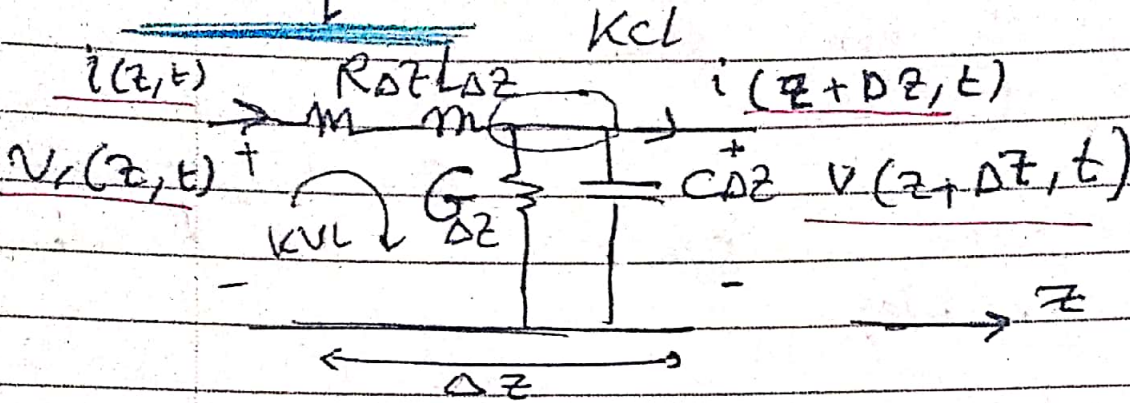 KCL
i(z,t) RΔz LΔz i(z+Δz,t)
V(z,t) + GΔz CΔz + V(z+Δz,t)
KVL
- - z
Δz